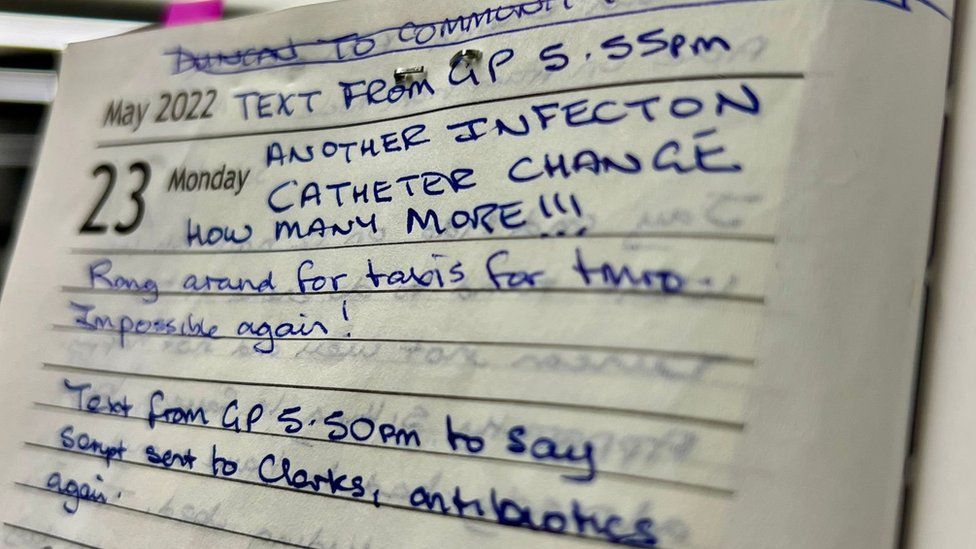 DUNCAN TO COMMUNI
May 2022 TEXT FROM GP 5.55pm
ANOTHER INFECTON
23 Monday CATHETER CHANGE
HOW MANY MORE!!!
Rang arand for taxis for tmro..
Impossible again!
Text from GP 5.50pm to say
script sent to Clarks, antibiotics
again.